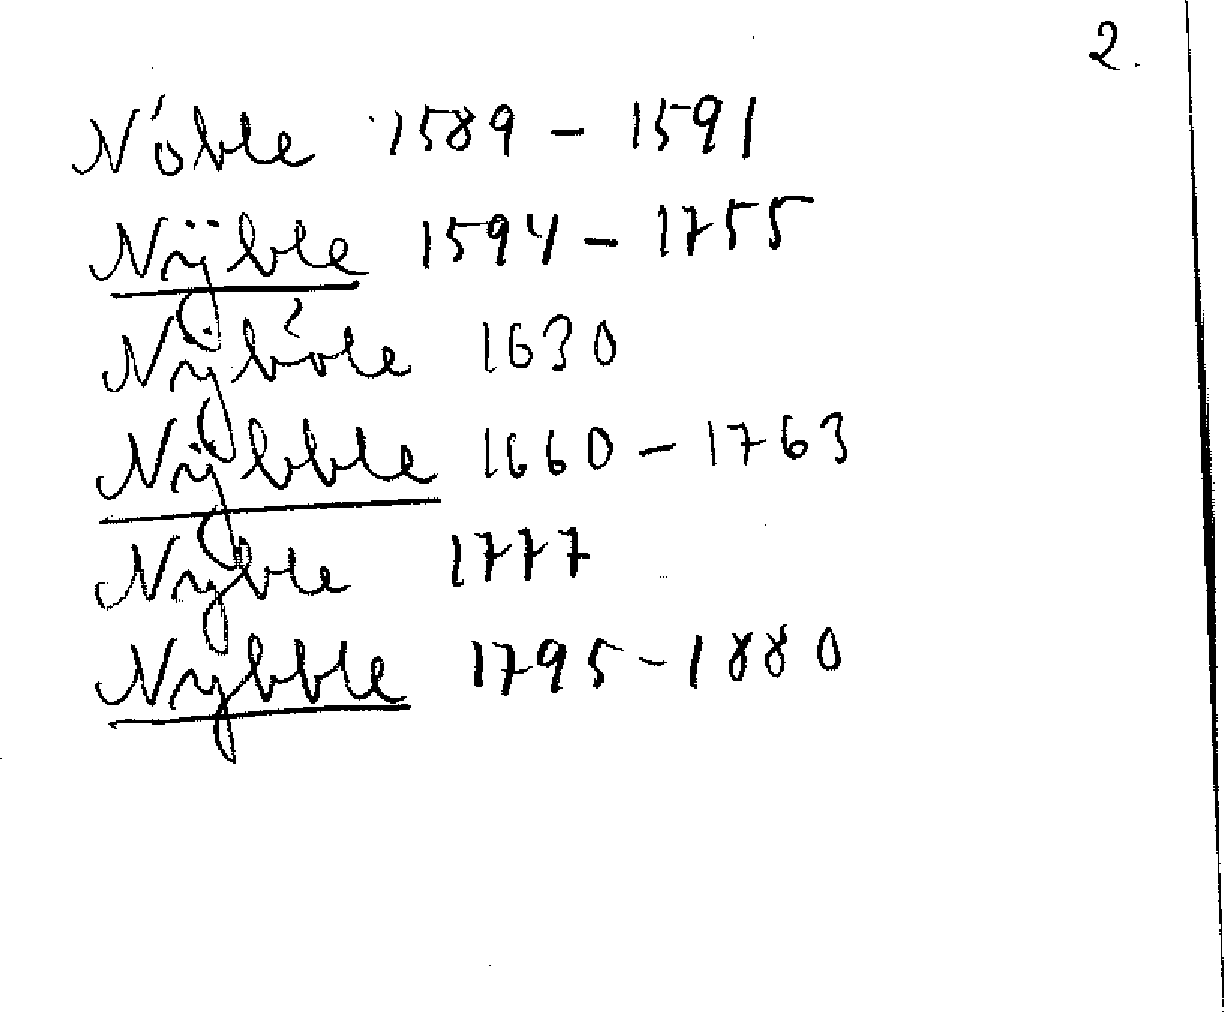 2.
Nóble 1589 - 1591
Nÿble 1594 - 1755
Nÿbóle 1630
Nÿbble 1660 - 1763
Nyble 1777
Nybble 1795 - 1880